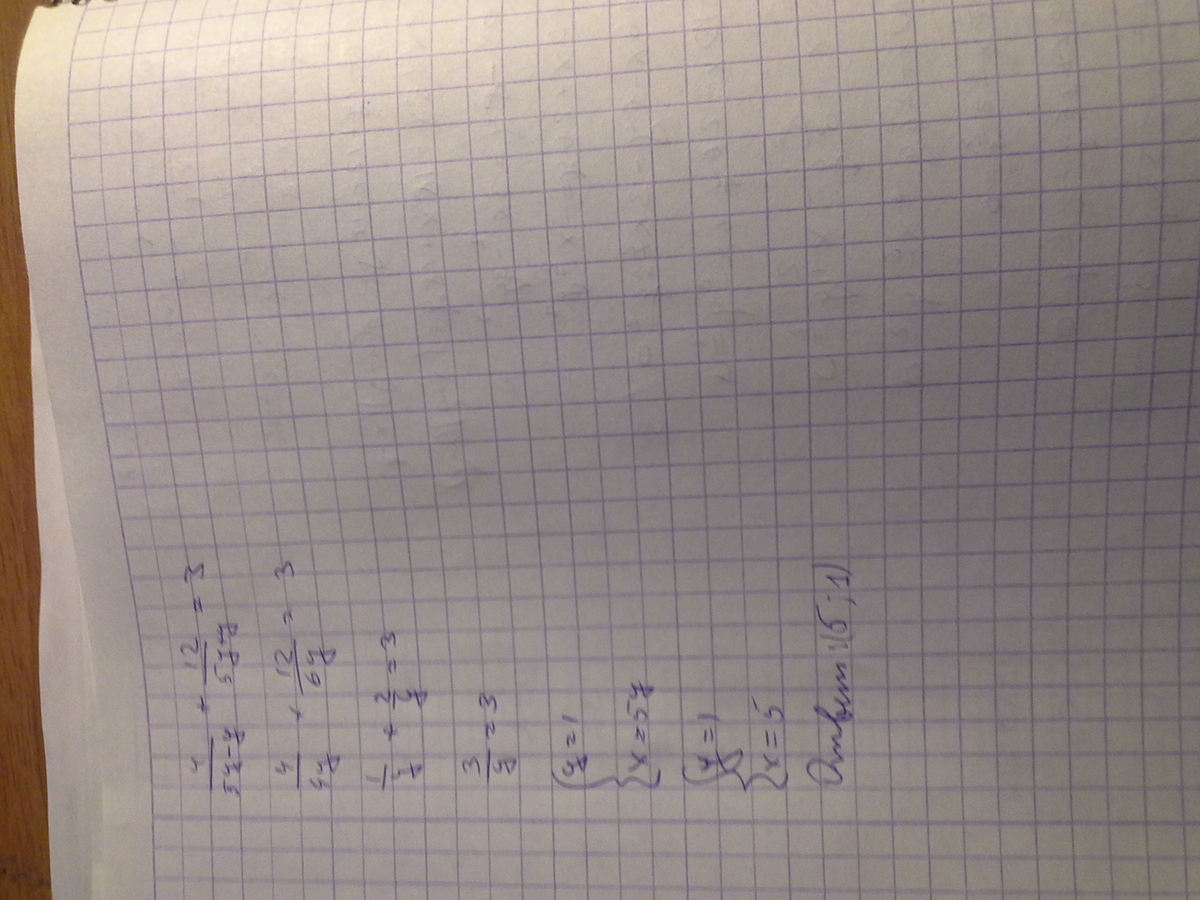 4/(5y-y) + 12/(5y+y) = 3
4/(4y) + 12/(6y) = 3
1/y + 2/y = 3
3/y = 3
{ y = 1
{ x = 5y
{ y = 1
{ x = 5
Ответ: (5; 1)